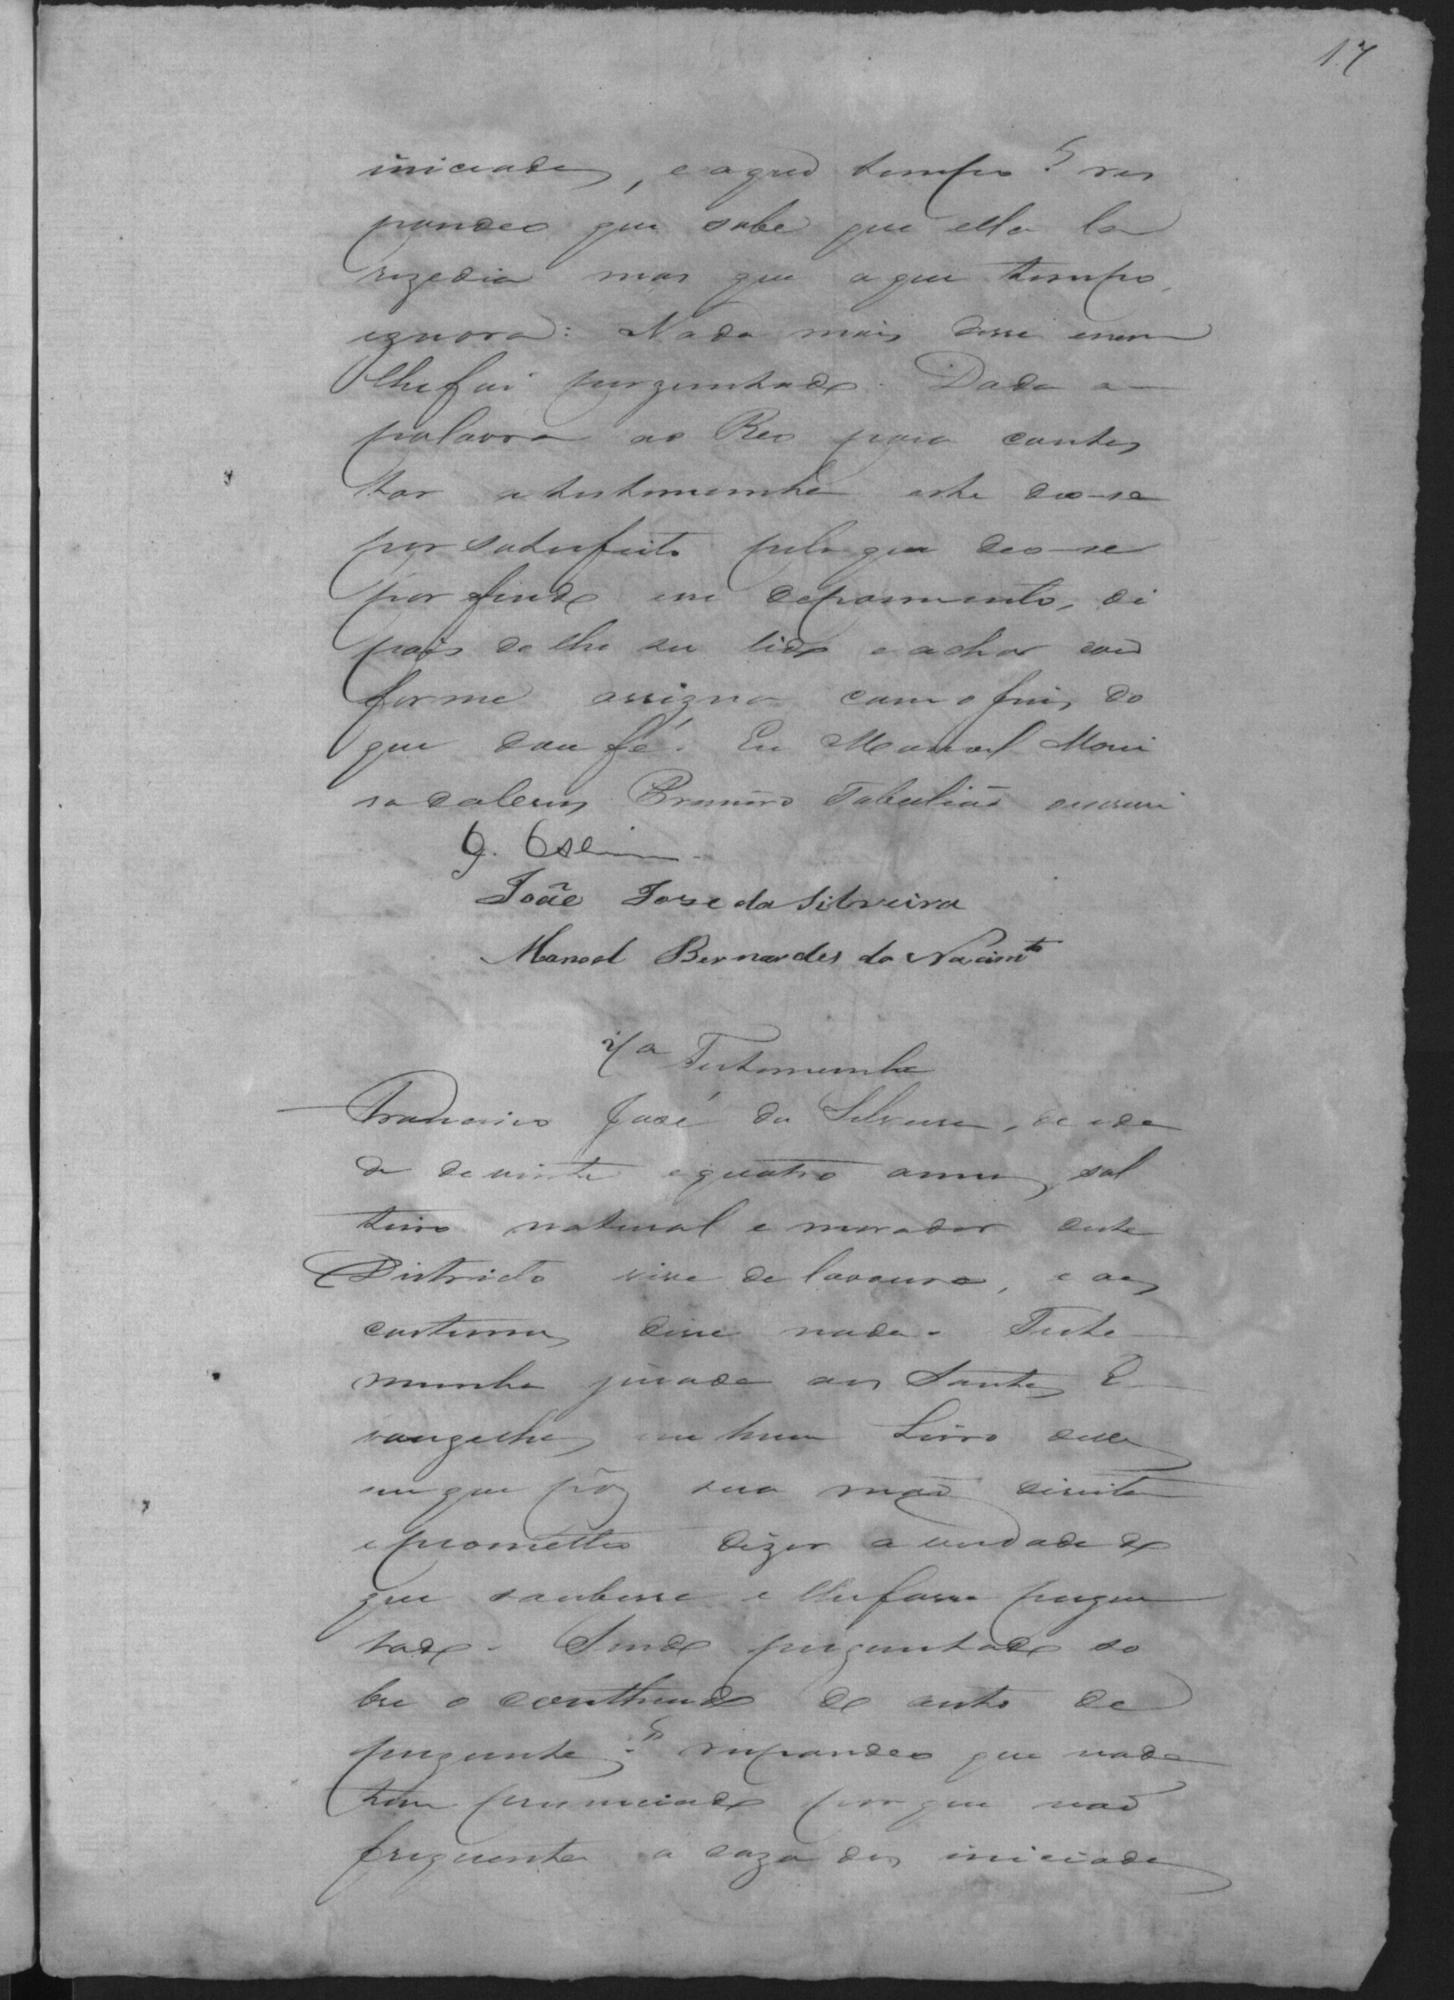 17
iniciados, e a que tempo? res
pondeo que sabe que ella la
rezedia mas que a que tempo,
ignora: Nada mais disse e nem
lhe foi perguntado. Dada a
palavra ao Reo para contes
tar a testemunha este deo-se
por satisfeito pelo que deo-se
por findo este depoimento, de
pois de lhe ser lido e achar con
forme assigna com o Juis do
que dou fé. Eu Manoel
Primeiro Tabalião escrevi
João Jose da Silveira
Manoel Bernardes do Nacimto
4a Testemunha
Francisco José da Silveira, de ida
de de vinte e quatro annos, sol
teiro natural e morador deste
Districto vive de lavoura, e aos
costumes disse nada. Teste
munha jurada aos Santos E
vangelhos em hum Livro delles
em que pôz sua mão direita
e prometteo dizer a verdade do
que soubesse e lhe fosse pergun
tado. Sendo perguntado so
bre o contheudo do auto de
pergunta? respondeo que nada
tem prinunciado por que não
frequenta a caza dos iniciados